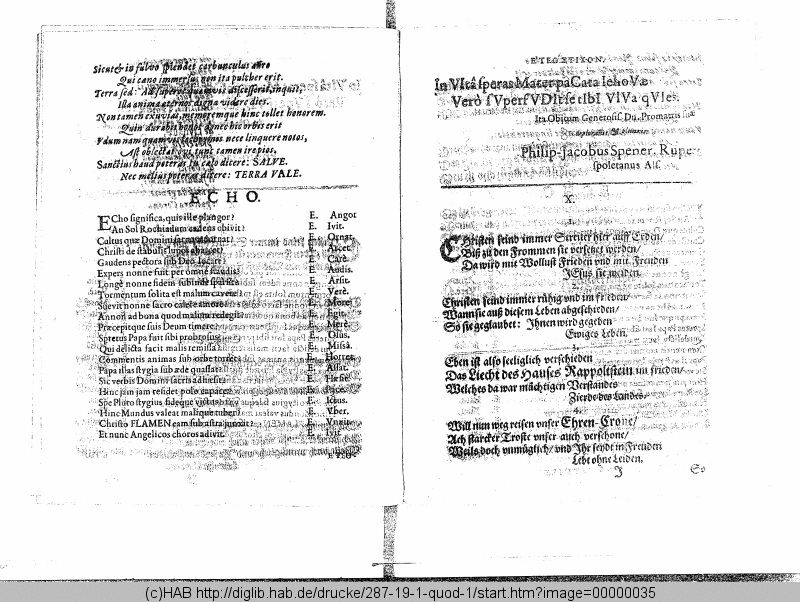 Sicut & in fulvo splendet carbunculus auro
Qui cano immersus non ita pulcher erit.
Terra sed: Ad superos quamvis discesserit, inquit,
Illa anima æternos digna videre dies.
Non tamen exuvias, memoremque hinc tollet honorem.
Quin durabit honor donec hic orbis erit
nam quamvis nece linquere notos,
Ast oblectat ovi, tunc tamen ire pios,
Sanctius haud poteras in cælo dicere: SALVE.
Nec melius poteras dicere: TERRA VALE.
ECHO.
ECho significa, quis ille plangor? E. Angor
An Sol Rochiadum cadens obivit? E. Ivit.
Cultus quæ Domini ornat? E. Ornat.
Christi de stabulis lupos arcet? E. Arcet.
Gaudens pectora sub Deo locare? E. Carè.
Expers nonne fuit per omne fraudis? E. Audis.
Longè nonne fidem subinde sparsit? E. Arsit.
Tormentum solita est malum cavere? E. Verè.
Suevit nonne sacro calere amore? E. More.
Annon ad bona quod malum redegit? E. Egit.
Præcepitque suis Deum timere? E. Merè.
Spretus Papa fuit sibi probrosus? E. Osus.
Qui delicta facit malis remissa? E. Missà.
Commentis animas sub orbe torret? E. Horret.
Papa illas stygia sub æde quassat? E. Assat.
Sic verbis Domini satris adhæsit? E. Hæsit.
Hinc jam jam residet polo capace? E. Pace.
Spe Pluto stygius, fideque victus? E. Ictus.
Hinc Mundus valeat malique tuber? E. Vber.
Christo FLAMEN eam sub astra junxit? E. Vnxit.
Et nunc Angelicos choros adivit. E. Ivit.
ΕΤΕΟΣΤΙΧΟΝ.
În VItâ speras Mater paCata IehoVæ
Verò sVperſVDIrſe tIbI VIVa qVIes.
Ita Obitum Generosiss. Dn. Promatris suæ
Philip-Jacobus Spener. Rupe-
spoletanus Als.
X.
1.
CHristen seind immer Streiter hier auff Erden/
Biß zu den Frommen sie versetzet werden/
Da wird mit Wollust Frieden und mit Freuden
JEsus sie weiden.
Christen seind immer rühig und im frieden/
Wann sie auß diesem Leben abgeschieden/
So sie geglaubet: Ihnen wird gegeben
Ewiges Leben.
Eben ist also seeliglich verschieden
Das Liecht des Hauses Rappoltstein im frieden/
Welches da war mächtigen Verstandes
Zierde des Landes.
4.
Will nun weg reisen unser Ehren-Crone/
Ach starcker Troste unser auch verschone/
Weils doch unmüglich/ und Ihr seydt in Freuden
Lebt ohne Leiden.
J
So
(c)HAB http://diglib.hab.de/drucke/287-19-1-quod-1/start.htm?image=00000035